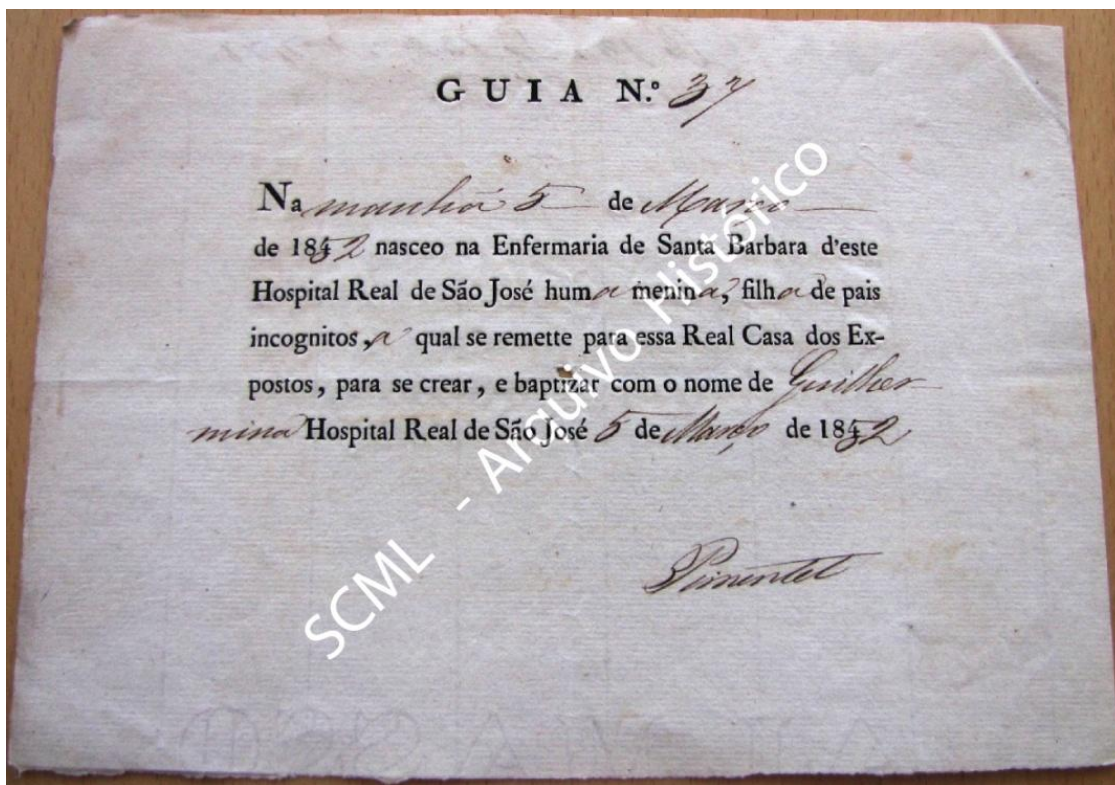 GUIA N.º 37
Na manhã 5 de Março
de 1852 nasceo na Enfermaria de Santa Barbara d'este
Hospital Real de São José huma menina, filha de pais
incognitos, a qual se remette para essa Real Casa dos Ex-
postos, para se crear, e baptizar com o nome de Guilher
mina Hospital Real de São José 5 de Março de 1852
Pimentel
SCML - Arquivo Histórico